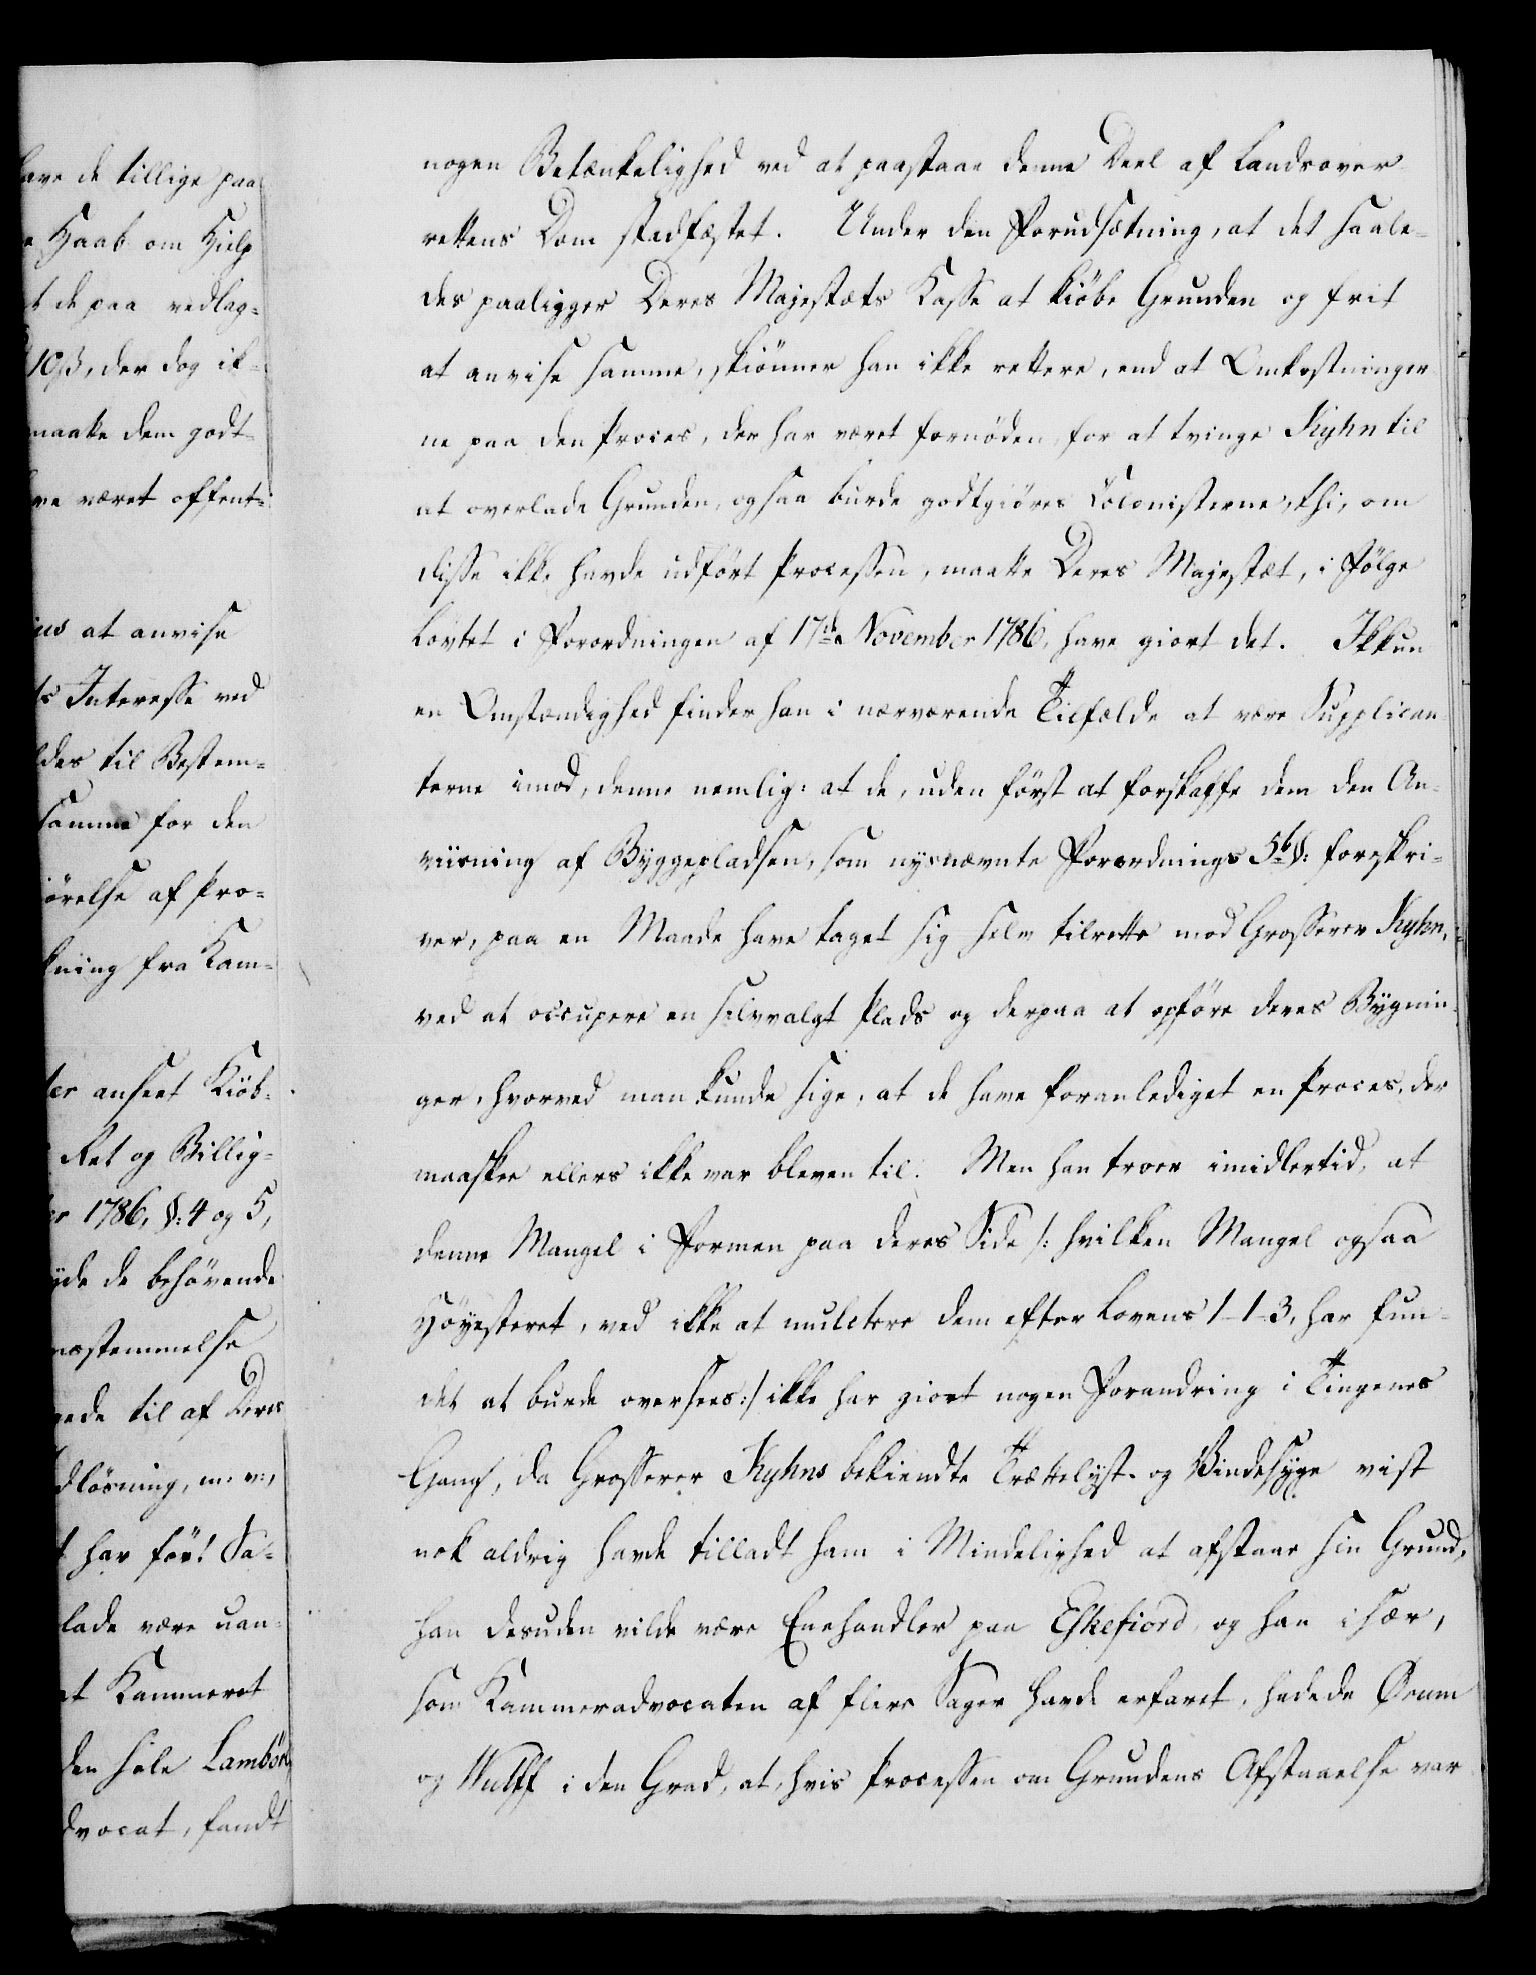 ave de tillige paa
e Haab om Hielp
t de paa vedlag-
10 ß, der dog ik-
maatte dem godt-
ve været offent-
ius at anvise
ts Interesse ved
ldes til Bestem-
samme for den
örelse af Pro-
kning fra Kam-
ter anseet Kiöb-
Ret og Billig-
er 1786, §: 4 og 5,
yde de behövende
nsstemmelse
gede til af Deres
dlösning, m: v:,
t har för! Sa-
lade være uan-
at Kammeret
den hele Lambön
dvocat, fandt
nogen Betænkelighed ved at paastaae denne Deel af Landsover-
rettens Dom stadfæstet. Under den Forudsætning, at det saale-
des paaligger Deres Majestæts Kasse at kiöbe Grunden og frit
at anvise samme, skiönner han ikke rettere, end at Omkostninger-
ne paa den Proces, der har været fornöden for at tvinge Kyhn til
at overlade Grunden, ogsaa burde godtgiöres Colonisterne, thi, om
disse ikke havde udfört Processen, maatte Deres Majestæt, i Fölge
Lövtet i Forordningen af 17de November 1786, have giort det. Ikkun
en Omstændighed finder han i nærværende Tilfælde at være Supplican-
terne imod, denne nemlig: at de, uden först at forskaffe dem den An-
viisning af Byggepladsen, som nysnævnte Forordnings 5te §: foreskri-
ver, paa en Maade have taget sig selv tilrette mod Grosserer Kyhn,
ved at occupere en selvvalgt Plads og derpaa at opföre deres Bygnin-
ger, hvorved man kunde sige, at de have foranlediget en Proces, der
maaskee ellers ikke var bleven til. Men han troer imidlertid, at
denne Mangel i Formen paa deres Side /: hvilken Mangel ogsaa
Höyesteret, ved ikke at mulctere dem efter Lovens 1-1-3, har fun-
det at burde oversees :/ ikke har giort nogen Forandring i Tingenes
Gang, da Grosserer Kyhns bekiendte Trættelyst- og Vindesyge vist
nok aldrig havde tilladt ham i Mindelighed at afstaae sin Grund,
han desuden vilde være Enehandler paa Eskefiord, og han i sær,
som Kammeradvocaten af flere Sager havde erfaret, hadede Örum
og Wulff i den Grad, at, hvis Processen om Grundens Afstaaelse var